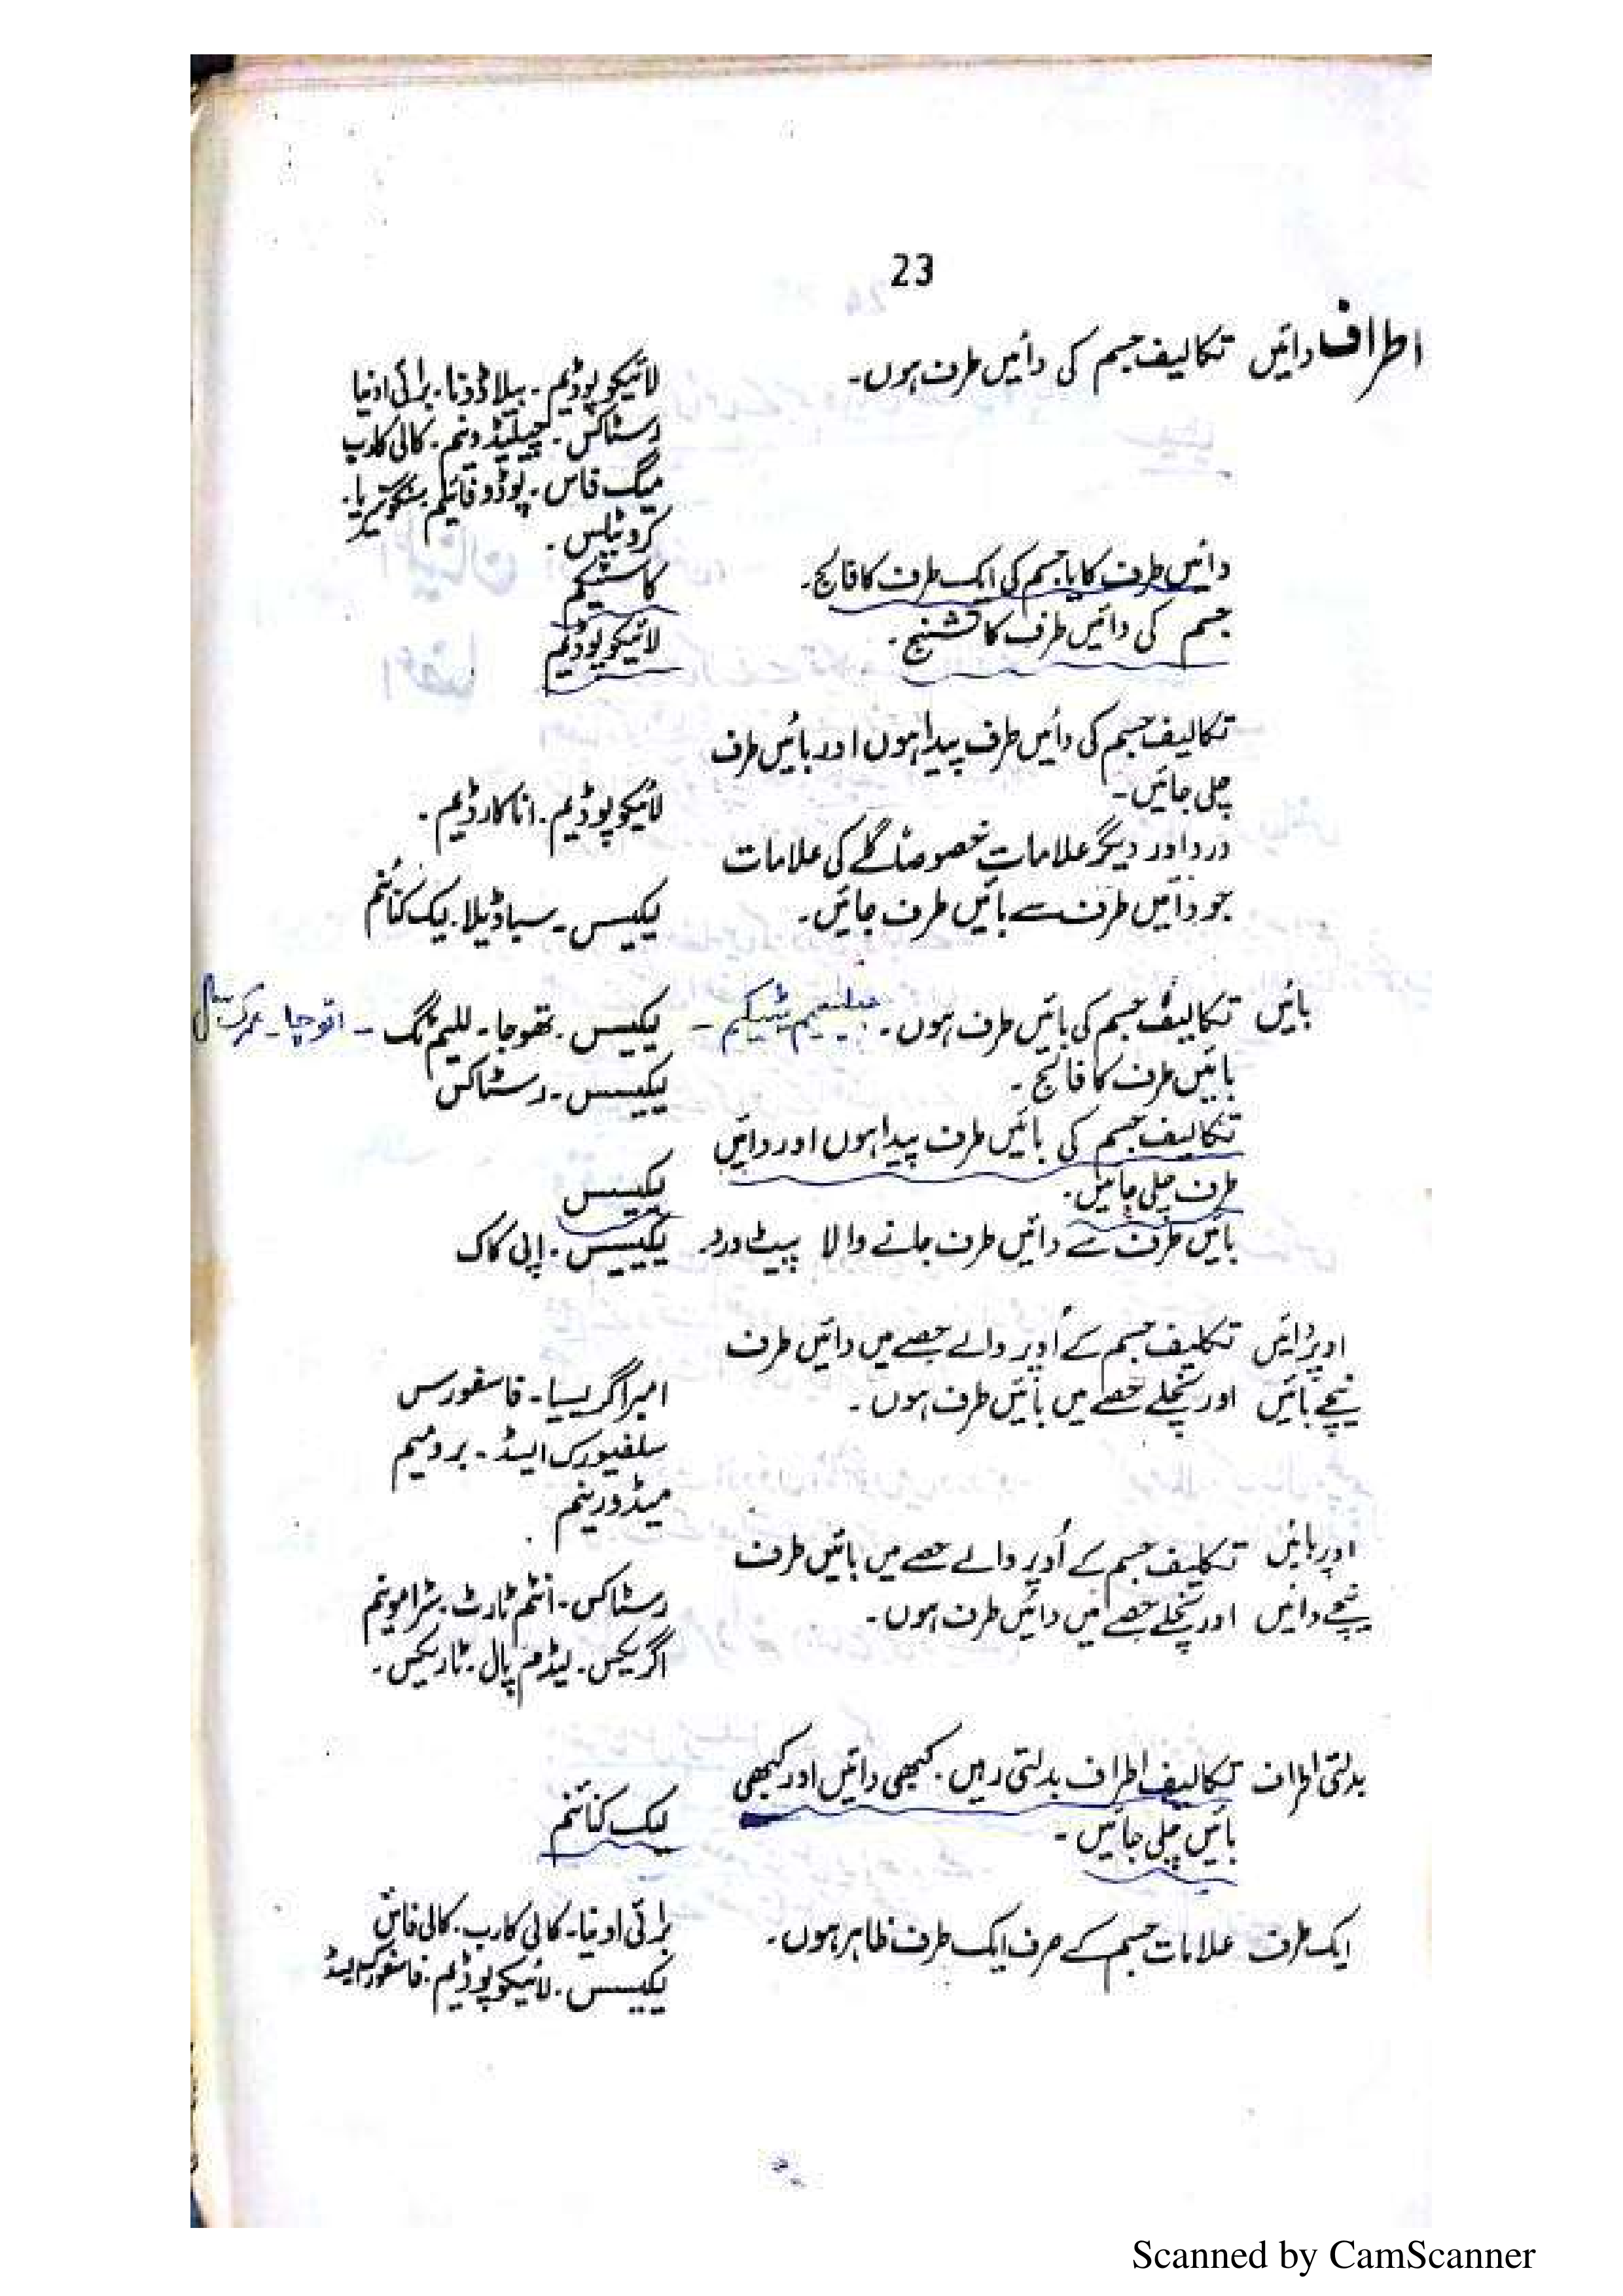 23
اطراف دائیں تکالیف جسم کی دائیں طرف ہوں۔
لائیکوپوڈیم۔ بیلاڈونا۔ برائی اونیا
رسٹاکس۔ چیلیڈونیم۔ کالی کارب
میگ فاس۔ پوڈوفائیلم۔ سنگونیریا۔
کروٹیلس۔
دائیں طرف کا یا جسم کی ایک طرف کا فالج۔ کاسٹیکم
جسم کی دائیں طرف کا تشنج۔ لائیکوپوڈیم
تکالیف جسم کی دائیں طرف پیدا ہوں اور بائیں طرف
چلی جائیں۔ لائیکوپوڈیم۔ اناکارڈیم۔
درد اور دیگر علامات خصوصاً گلے کی علامات
جو دائیں طرف سے بائیں طرف جائیں۔ لیکیسس۔ سباڈیلا۔ لیک کنائنم
بائیں تکالیف جسم کی بائیں طرف ہوں۔ لیکیسس۔ تھوجا۔ للیم ٹگ
بائیں طرف کا فالج۔ لیکیسس۔ رسٹاکس
تکالیف جسم کی بائیں طرف پیدا ہوں اور دائیں
طرف چلی جائیں۔ لیکیسس
بائیں طرف سے دائیں طرف جانے والا پیٹ درد۔ لیکیسس۔ اپی کاک
اوپر دائیں تکلیف جسم کے اُوپر والے حصے میں دائیں طرف
نیچے بائیں اور نچلے حصے میں بائیں طرف ہوں۔ امبراگریسیا۔ فاسفورس
سلفیورک ایسڈ۔ برومیم
میڈورینم
اوپر بائیں تکلیف جسم کے اُوپر والے حصے میں بائیں طرف
نیچے دائیں اور نچلے حصے میں دائیں طرف ہوں۔ رسٹاکس۔ انٹم ٹارٹ۔ سٹرامونیم
اگریکس۔ لیڈم پال۔ ٹاریکس۔
بدلتی اطراف تکالیف اطراف بدلتی رہیں۔ کبھی دائیں اور کبھی
بائیں چلی جائیں۔ لیک کنائنم
ایک طرف علامات جسم کے صرف ایک طرف ظاہر ہوں۔ برائی اونیا۔ کالی کارب۔ کالی فاس
لیکیسس۔ لائیکوپوڈیم۔ فاسفورک ایسڈ
Scanned by CamScanner